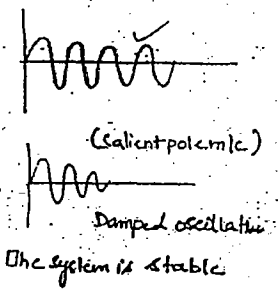 (Salient pole m/c)
Damped oscillation
The system is stable